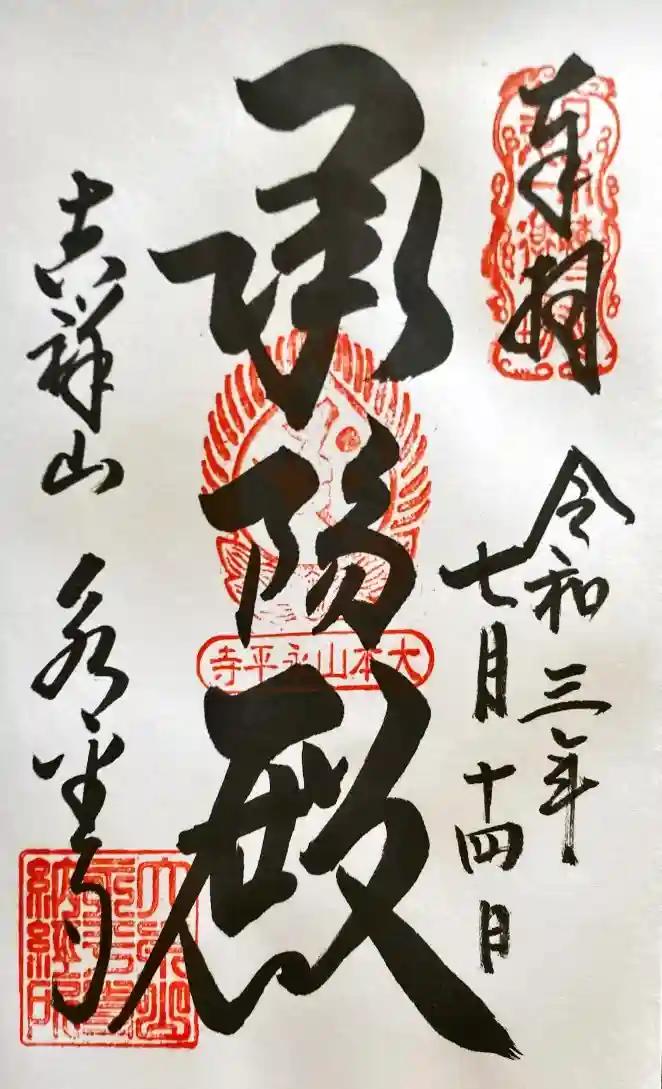 奉拝
令和三年
七月十四日
承陽殿
大本山永平寺
吉祥山 永平寺